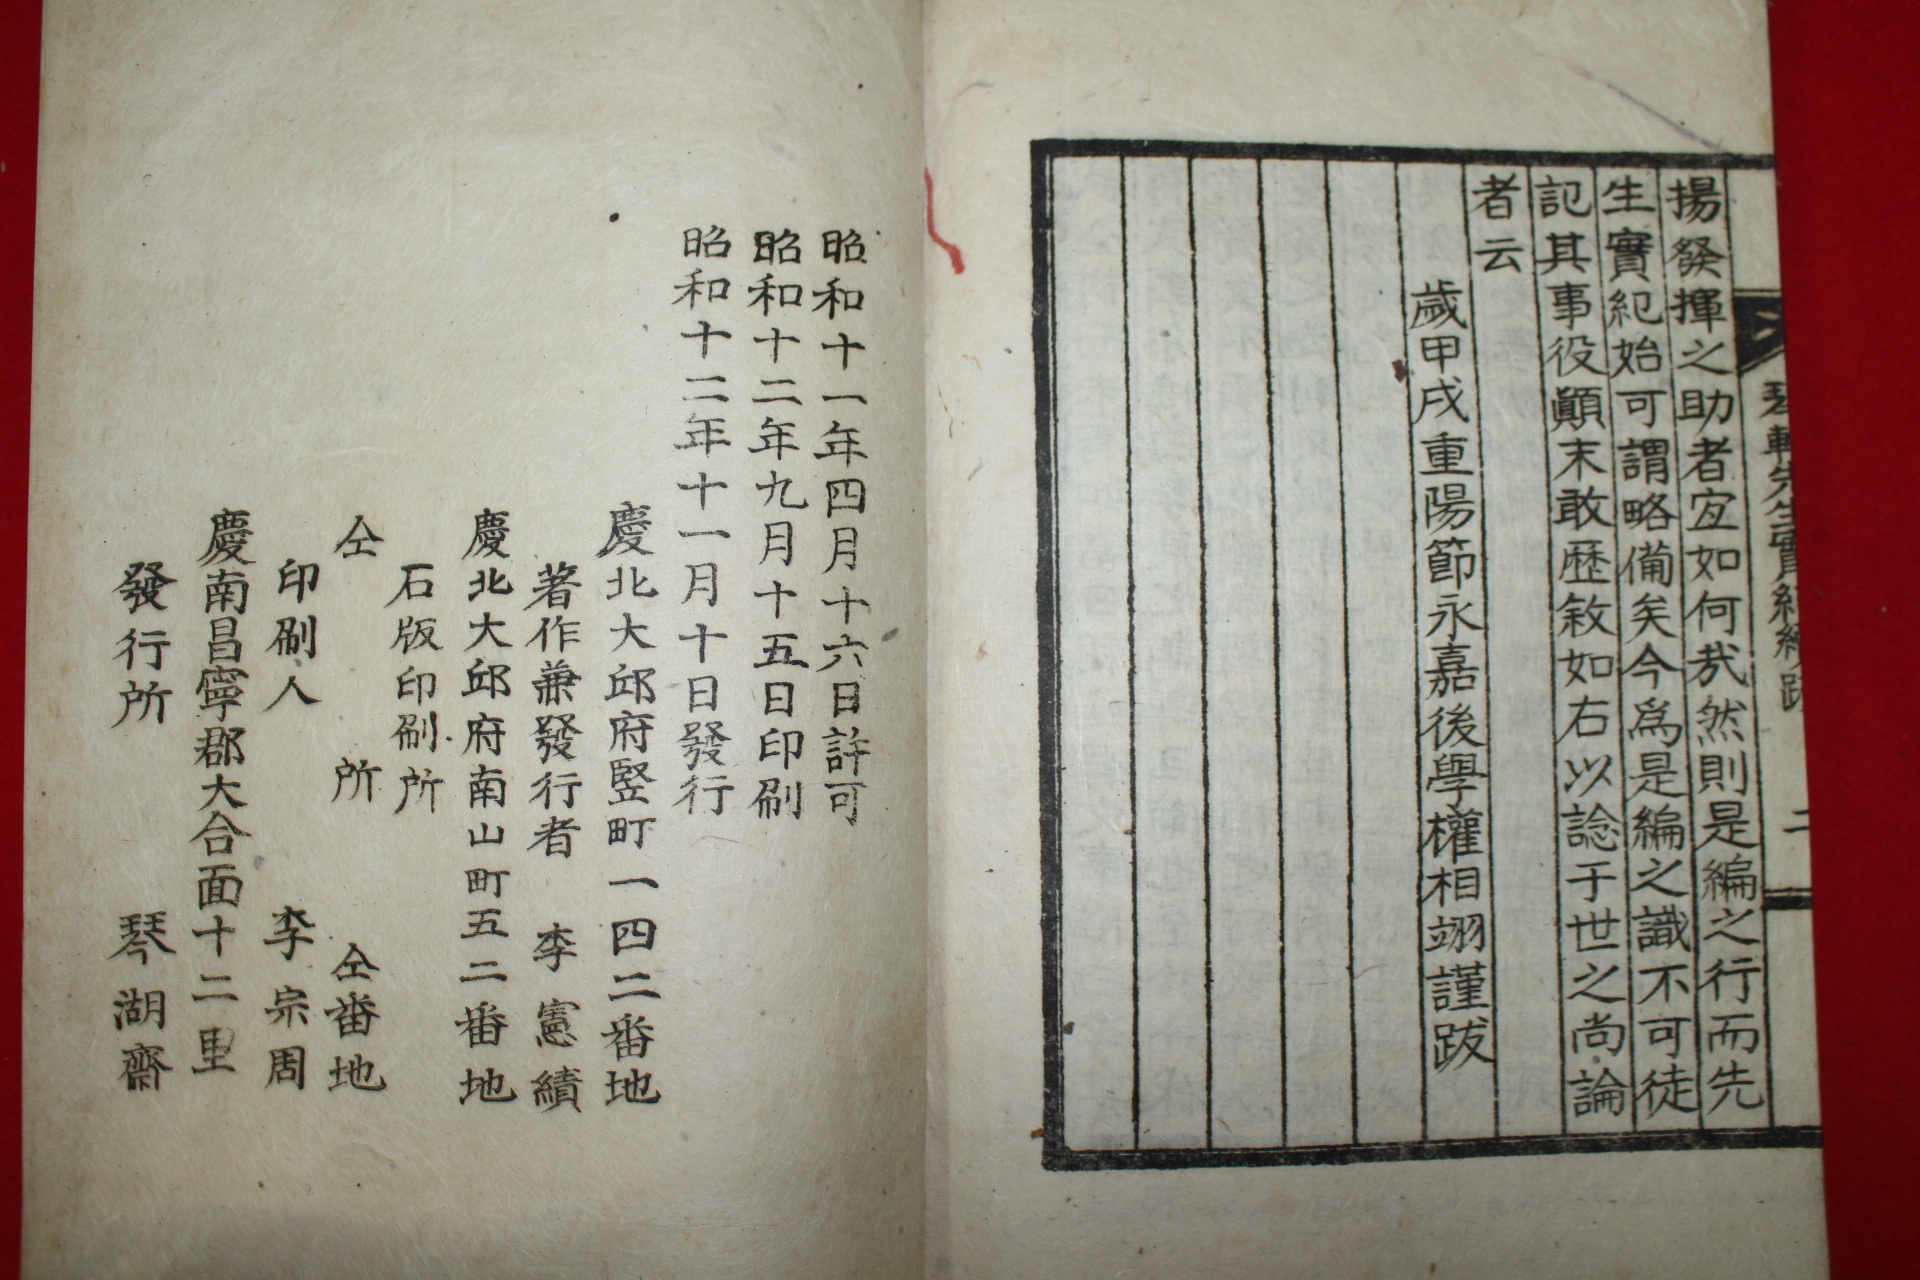 琴軒先生實紀續跋
二
揚發揮之助者宜如何哉然則是編之行而先
生實紀始可謂略備矣今爲是編之識不可徒
記其事役顚末敢歷敘如右以諗于世之尚論
者云
歲甲戌重陽節永嘉後學權相翊謹跋
昭和十一年四月十六日許可
昭和十二年九月十五日印刷
昭和十二年十一月十日發行
慶北大邱府竪町一四二番地
著作兼發行者 李憲績
慶北大邱府南山町五二番地
石版印刷所
仝所 仝番地
印刷人 李宗周
慶南昌寧郡大合面十二里
發行所 琴湖齋